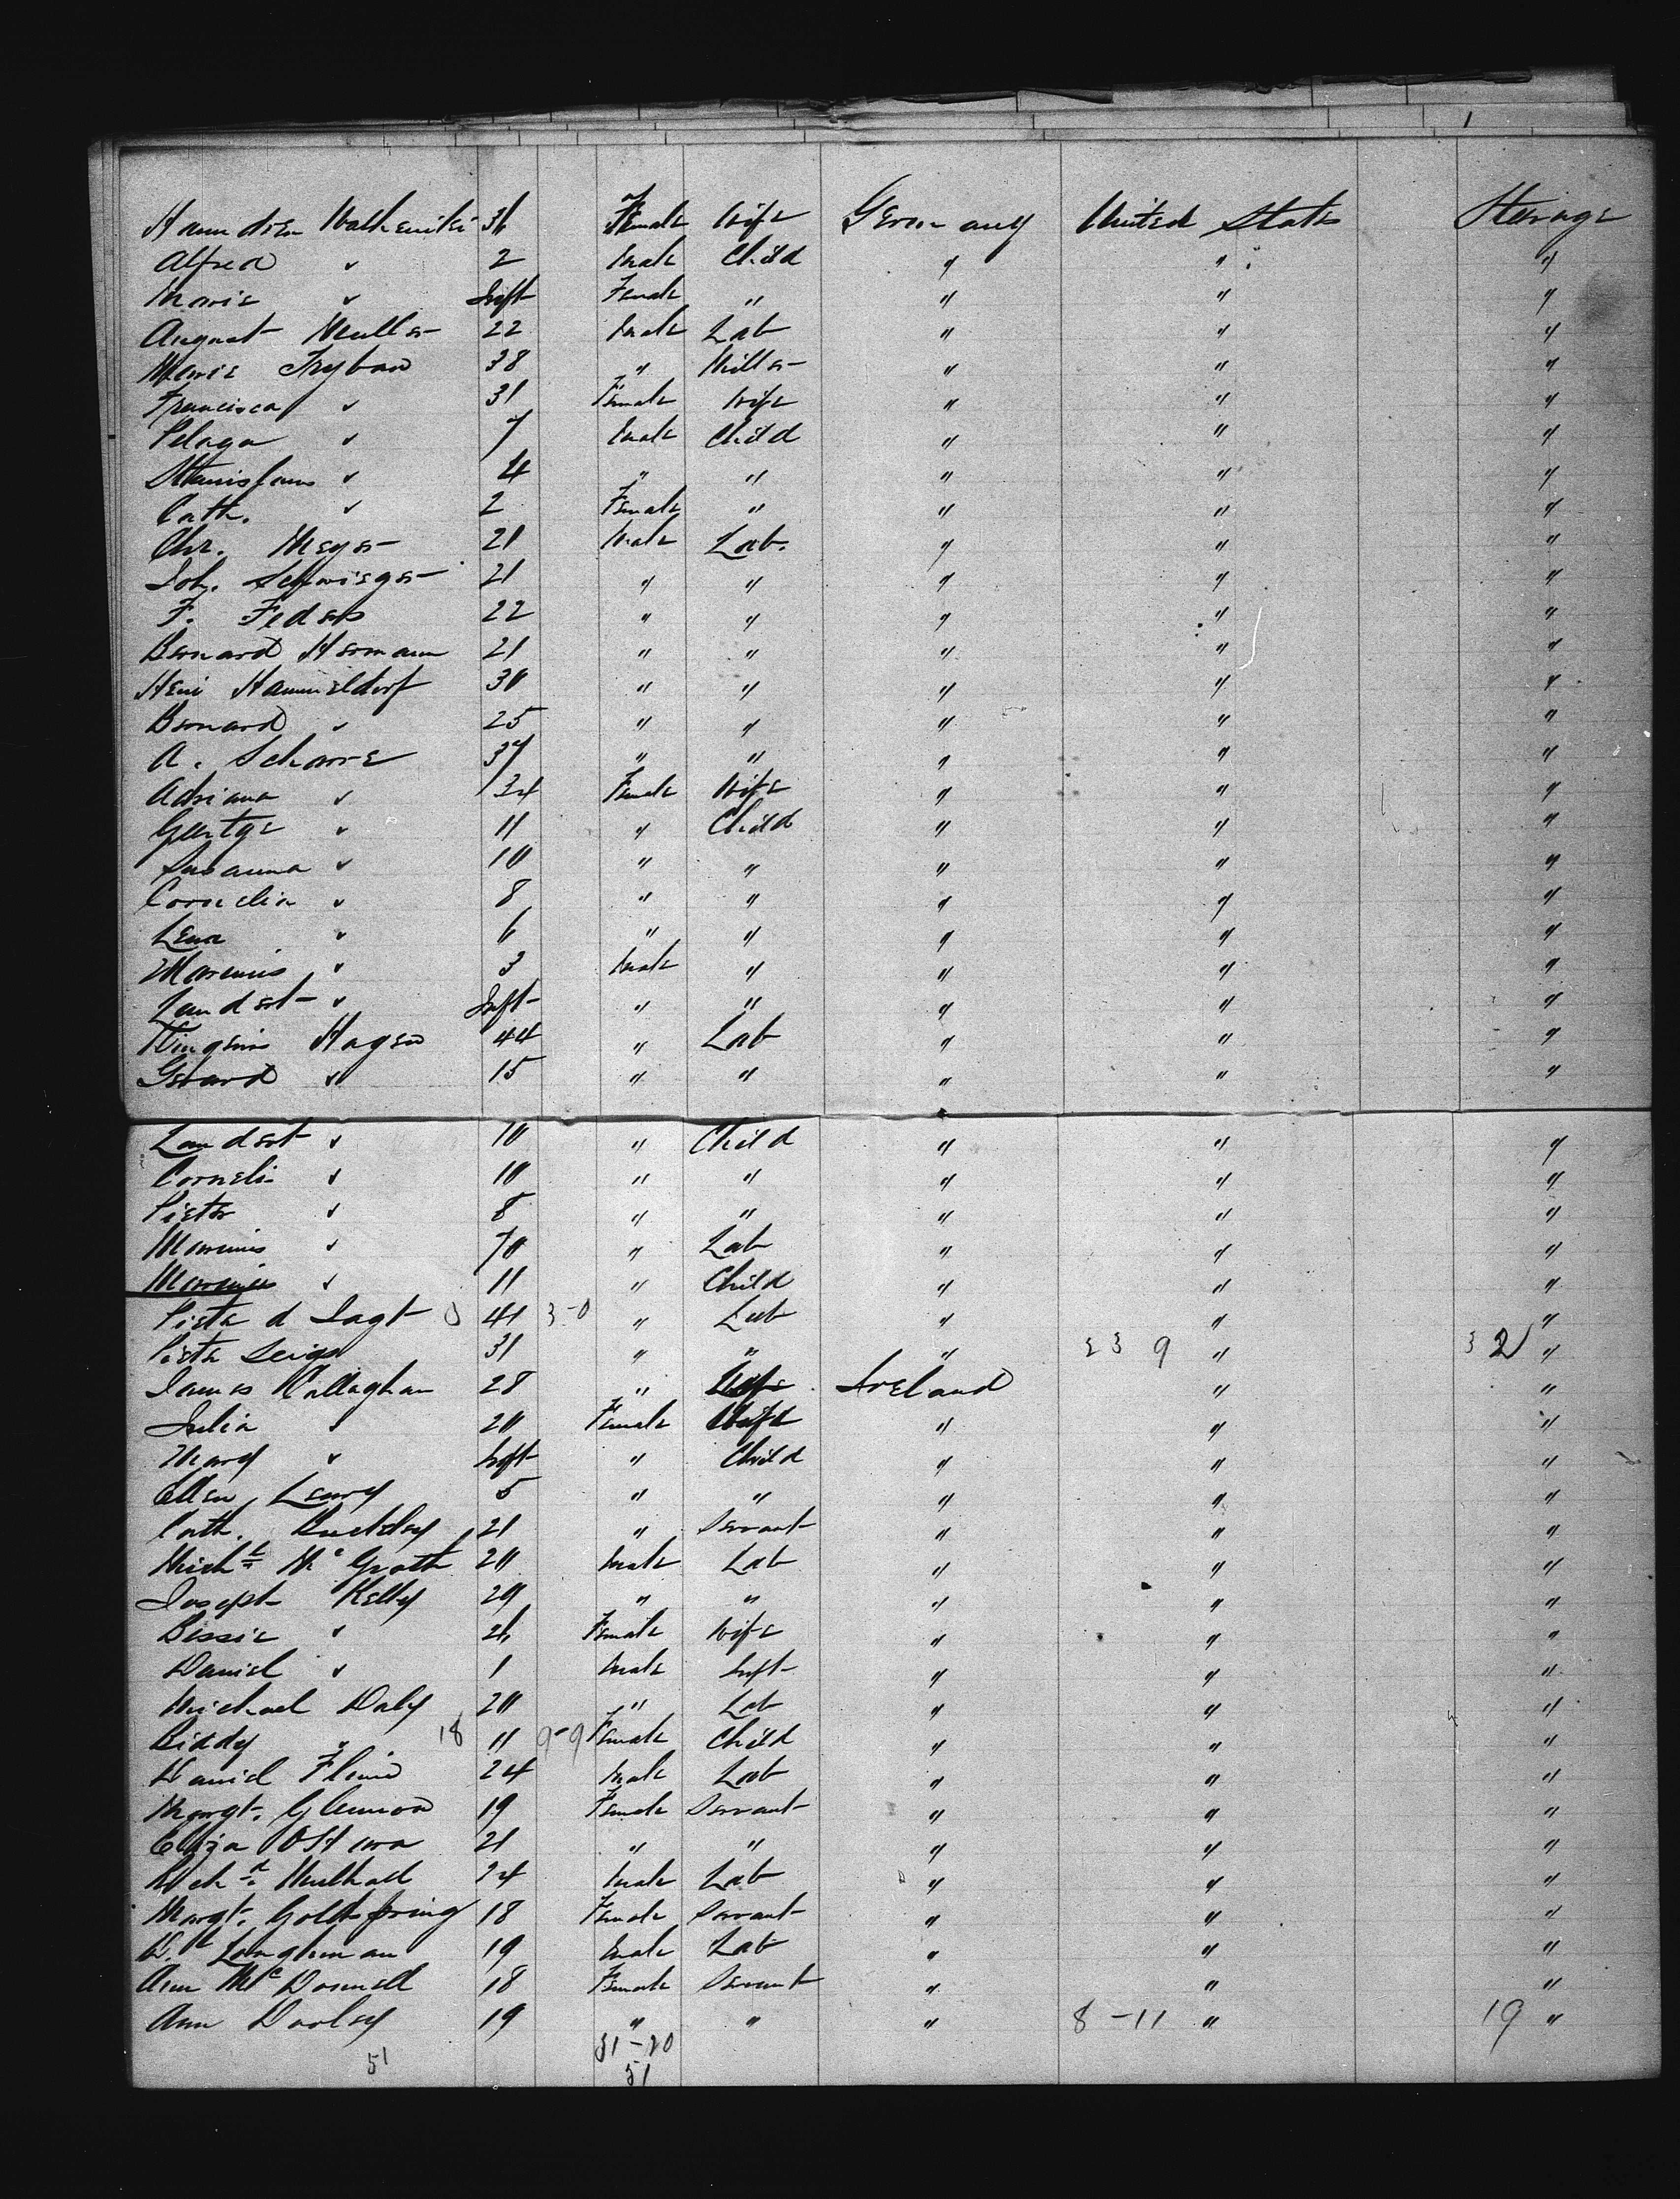 36 Female Wife Germany United States Steerage
Alfred " 2 Male Child " " "
Marie " Inft Female " " " "
August Muller 22 Male Lab " " "
Marie 38 " Miller " " "
Francisca " 31 Female Wife " " "
Pelaga " 7 Male Child " " "
Stanislaus " 4 " " " " "
Cath. " 2 Female " " " "
Chr. Meyer 21 Male Lab. " " "
Joh. Schwieger 21 " " " " "
F. Feders 22 " " " " "
Bernard Hermann 21 " " " " "
Heni Hammeldorf 30 " " " " "
Bernard " 25 " " " " "
A. 37 " " " " "
Adriana " 34 Female Wife " " "
Geertge " 11 " Child " " "
Susanna " 10 " " " " "
Cornelia " 8 " " " " "
Lena " 6 " " " " "
Marinus " 3 Male " " " "
Landert " Inft " " " " "
Hagen 44 " Lab " " "
Gerard " 15 " " " " "
Landert " 10 " Child " " "
Corneli " 10 " " " " "
Pieter " 8 " " " " "
Marinus " 70 " Lab " " "
Marinus " 11 " Child " " "
Pieter d 41 3-0 " Lab " " "
31 " " " 9 " 32 "
James Callaghan 28 " Ireland " "
Julia " 20 Female Wife " " "
Mary " Inft " Child " " "
Ellen Leary 5 " " " " "
Cath. Buckley 21 " Servant " " "
Michl Mc Grath 20 Male Lab " " "
Joseph Kelly 29 " " " " "
Bessie " 26 Female Wife " " "
Daniel " 1 Male Inft " " "
Michael Daly 20 " Lab " " "
Biddy " 18 11 9-9 Female Child " " "
Daniel 24 Male Lab " " "
Margt. Glennon 19 Female Servant " " "
Eliza O'Hara 21 " " " " "
Richd. Mulhall 24 Male Lab " " "
Margt. Goldspring 18 Female Servant " " "
Loughman 19 Male Lab " " "
Ann McDonnell 18 Female Servant " " "
Ann Dooley 19 " " " 8-11 " 19 "
51 31-20
51